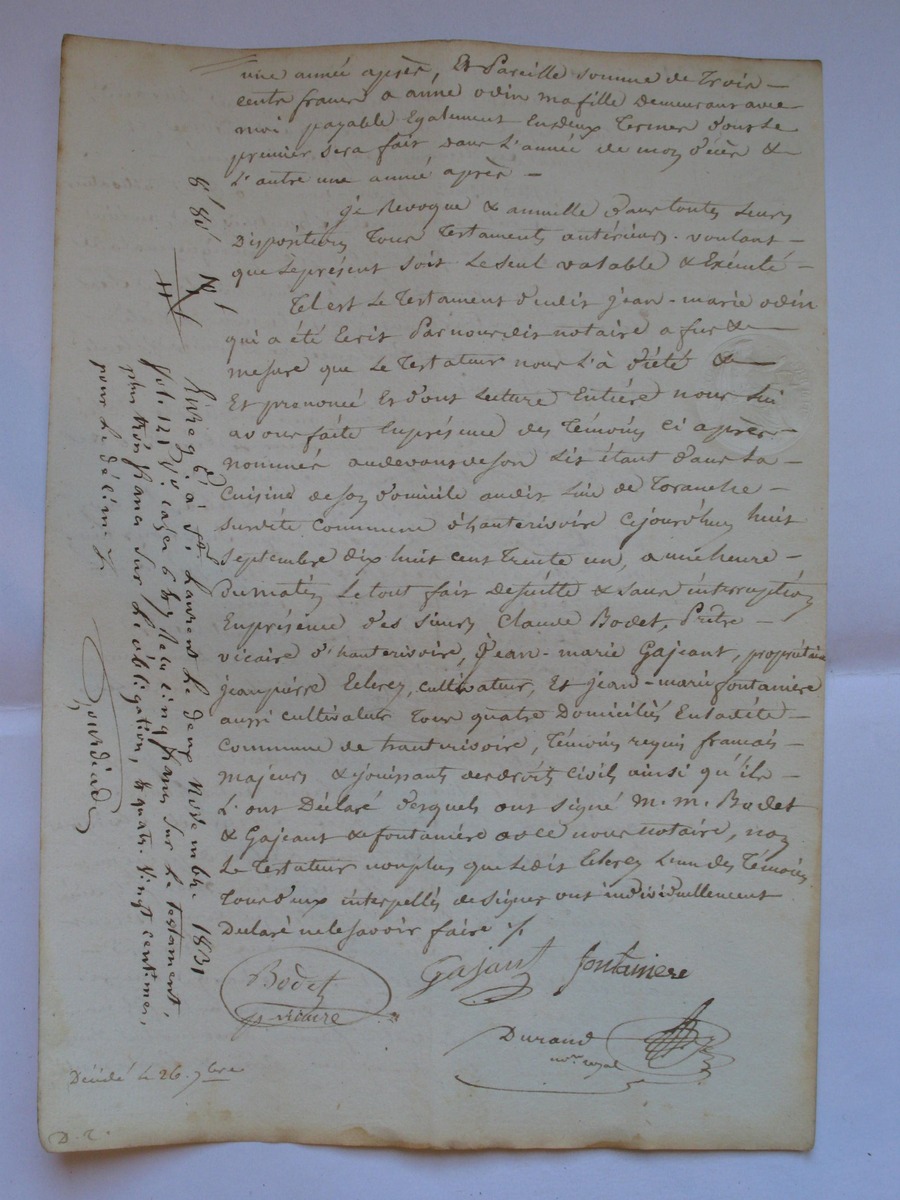 une année après, Et Pareille somme de Trois
cents francs a anne odin ma fille Demeurant avec
moi payable Egalement En deux Termes dont Le
premier sera fait dans L'année de mon décès &
L'autre une année après —
je Revoque & annulle dans toutes Leurs
Dispositions Tous Testaments antérieurs. voulant —
que Le présent soit Le seul valable & Exécuté —
Tel est Le Testament dudit jean-marie odin
qui a été Ecrit Par nous dit notaire a fur &
mesure que Le Testateur nous L'à dicté &
Et prononcé Et dont Lecture Entière nous Lui
avons faite En présence des Témoins ci après
nommés au devant de son Lit étant dans La
Cuisine de son domicile audit Lieu de Toranche
susdite Commune d'hauterivoire Cejourd'huy huit
Septembre dix huit cent trente un, a une heure
du matin Le tout fait de suitte & sans interruption
En présence des Sieurs Claude Bodet, Prêtre
vicaire d'hauterivoire, Jean-marie Gajeant, propriétaire
jean pierre Eclerez, cultivateur, Et jean-marie fontaniere
aussi cultivateur Tous quatre Domiciliés En ladite
Commune de hauterivoire, Témoins requis francais
majeurs & jouissants des droits civils ainsi qu'ils
L'ont Déclaré desquels ont signé M. M. Bodet
& Gajeant & fontanière avec nous notaire, non
Le Testateur non plus que Ledit Eclerez L'un des Témoins
Tous deux interpellés de signer ont individuellement
Declaré ne le savoir faire ./.
Bodet
vicaire
Gajant
fontaniere
Durand
no.re royal
Enreg.é à S.t Laurent Le deux Novembre 1831
fol. 121 V.o cases 6 & 7 Reçu cinq francs sur Le testament,
plus trois francs sur L'obligation, & quatre vingt centimes,
pour Le décime ./.
Décédé Le 26 7bre
D. 2.